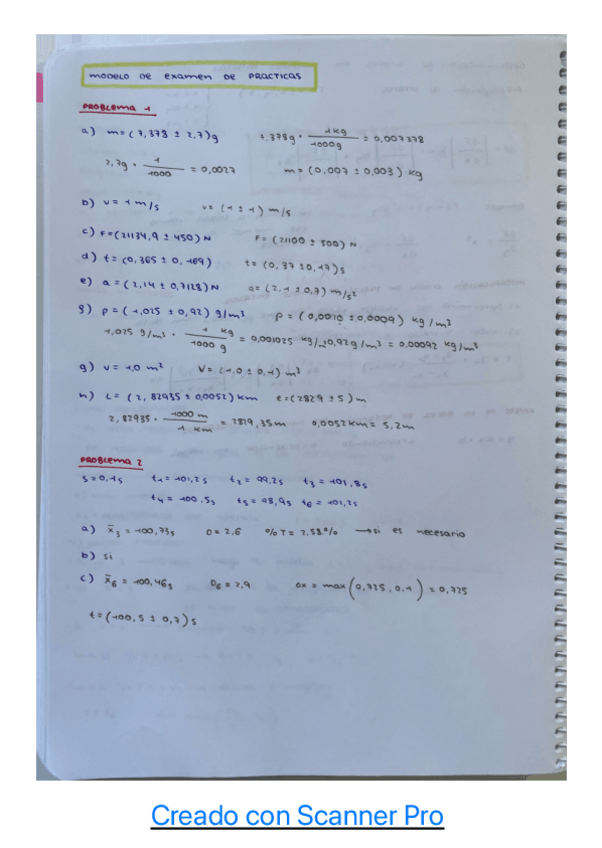 MODELO DE EXAMEN DE PRACTICAS
PROBLEMA 1
a) m = (7,378 ± 2,7)g 7,378g · 1kg/1000g = 0,007378
2,7g · 1/1000 = 0,0027 m = (0,007 ± 0,003) kg
b) v = 1 m/s v = (1 ± 1) m/s
c) F = (21134,9 ± 450) N F = (21100 ± 500) N
d) t = (0,365 ± 0,169) t = (0,37 ± 0,17) s
e) a = (2,14 ± 0,7128) N a = (2,1 ± 0,7) m/s²
g) ρ = (1,025 ± 0,92) g/m³ ρ = (0,0010 ± 0,0009) kg/m³
1,025 g/m³ · 1 kg/1000 g = 0,001025 kg/m³ 0,92g/m³ = 0,00092 kg/m³
g) v = 1,0 m² V = (1,0 ± 0,1) m³
h) L = (2,82935 ± 0,0052) km e = (2829 ± 5) m
2,82935 · 1000 m/1 km = 2829,35m 0,0052km = 5,2m
PROBLEMA 2
s = 0,1s t1 = 101,2s t2 = 99,2s t3 = 101,8s
t4 = 100,5s t5 = 98,9s t6 = 101,2s
a) x̄3 = 100,73s D = 2,6 %T = 2,58% → si es necesario
b) si
c) x̄6 = 100,46s D6 = 2,9 Δx = max(0,725, 0,1) = 0,725
t = (100,5 ± 0,7) s
Creado con Scanner Pro